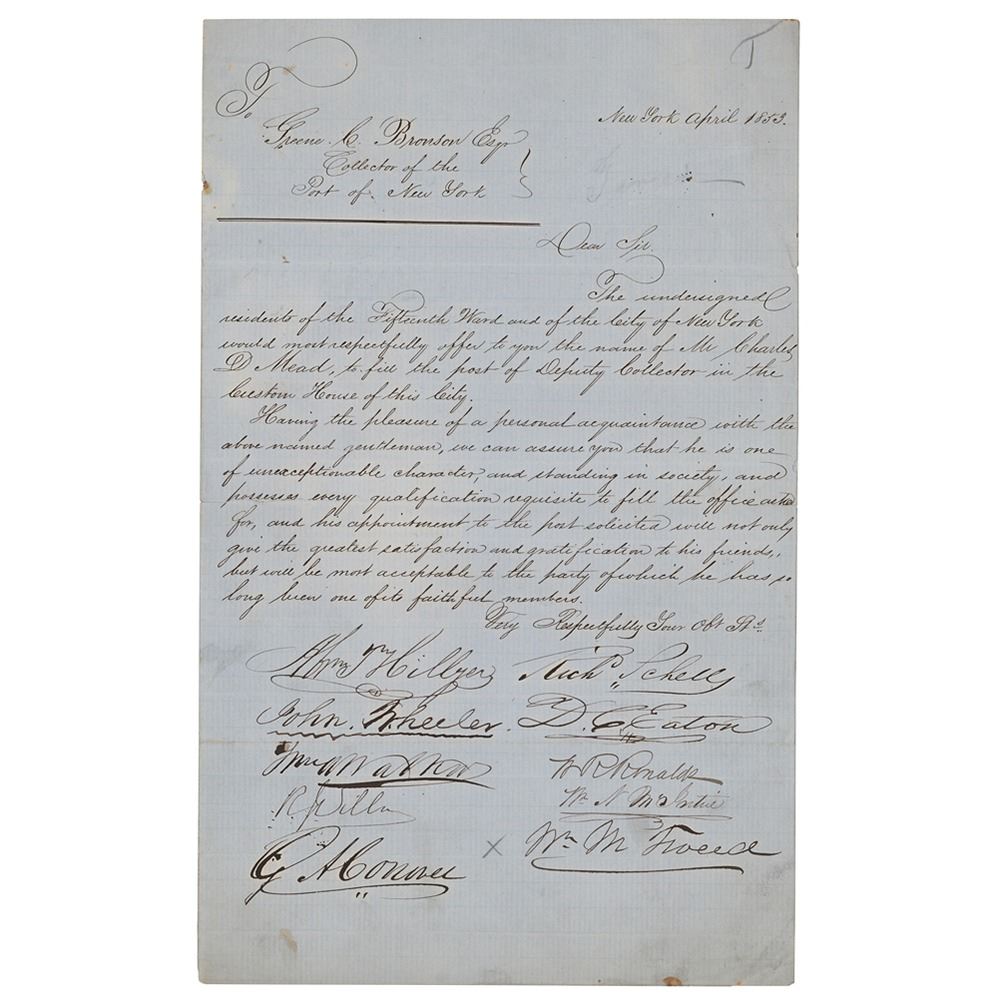 To
Greene C. Bronson Esqr
Collector of the
Port of New York
New York April 1853.
Dear Sir.
The undersigned
residents of the Fifteenth Ward and of the City of New York
would most respectfully offer to you the name of Mr Charles
D Mead, to fill the post of Deputy Collector in the
Custom House of this City.
Having the pleasure of a personal acquaintance with the
above named gentleman, we can assure you that he is one
of unexceptionable character, and standing in society, and
possesses every qualification requisite to fill the office asked
for, and his appointment to the post solicited will not only
give the greatest satisfaction and gratification to his friends,
but will be most acceptable to the party of which he has so
long been one of its faithful members.
Very Respectfully Your Obt Sts
Hillyer
Richd Schell
John Wheeler
D. C. Eaton
Wm
W R Ronalds
Wm N McIntire
G A Conover
x Wm M Tweed